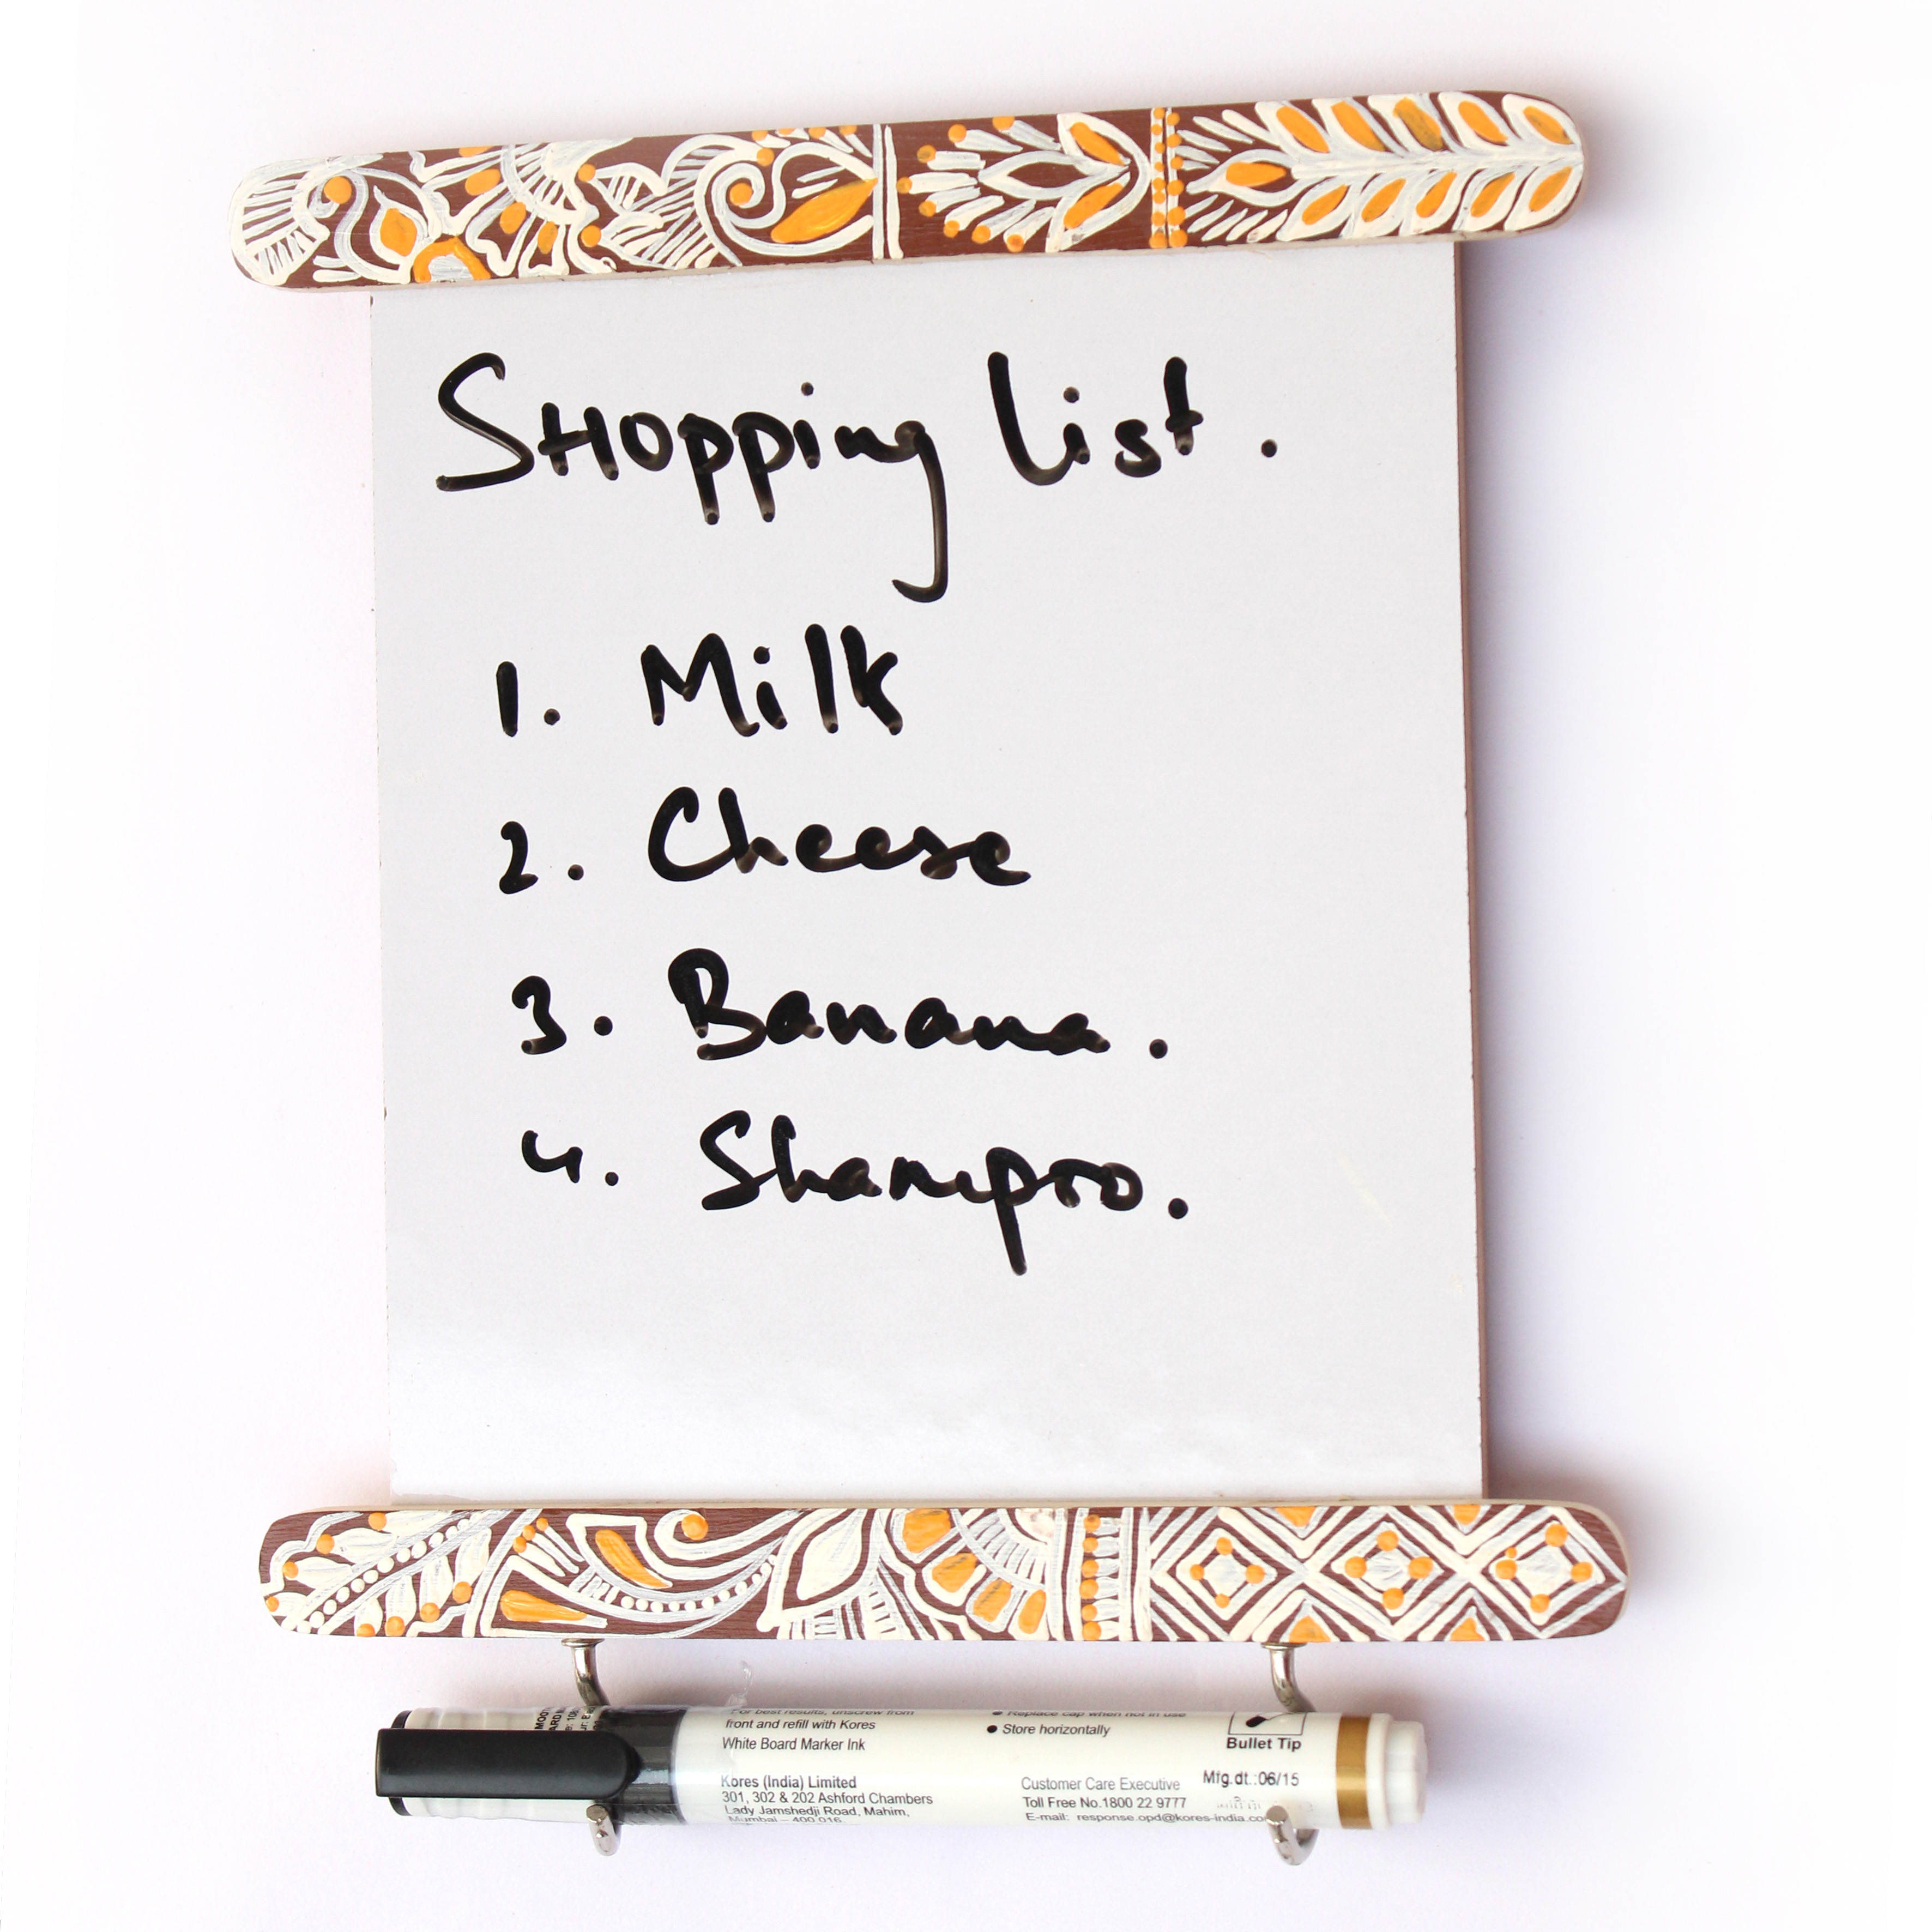 Shopping list.
1. Milk
2. Cheese
3. Banana.
4. Shampoo.
For best results, unscrew from
front and refill with Kores
White Board Marker Ink
Kores (India) Limited
301, 302 & 202 Ashford Chambers
Lady Jamshedji Road, Mahim,
Mumbai – 400 016.
● Replace cap when not in use
● Store horizontally
Customer Care Executive
Toll Free No.1800 22 9777
E-mail: response.opd@kores-india.co
Bullet Tip
Mfg.dt.:06/15